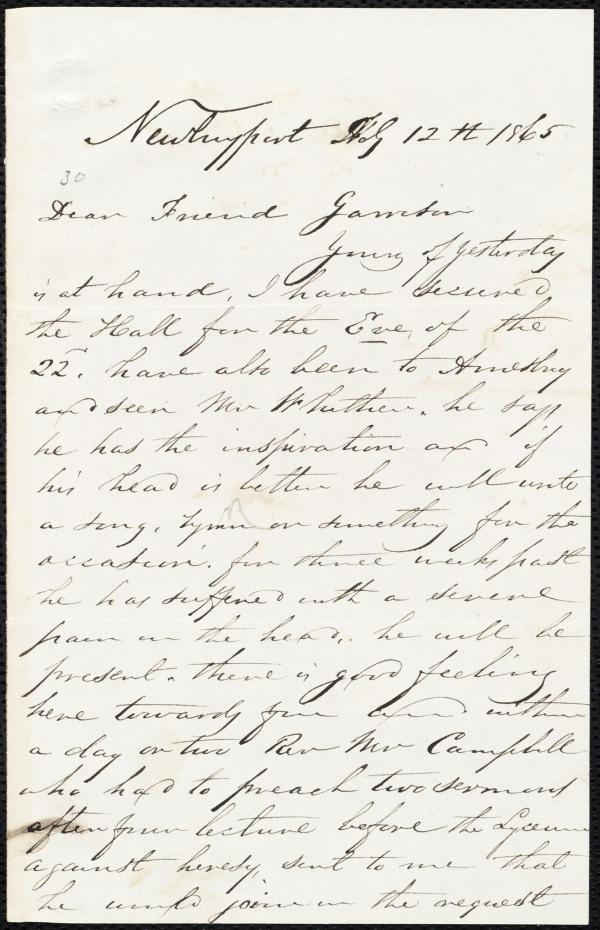 Newburyport Feby 12th 1865
30
Dear Friend Garrison
Yours of yesterday
is at hand, I have secured
the Hall for the Eve, of the
22d. have also been to Amesbury
and seen Mr Whittier. he says
he has the inspiration and if
his head is better he will write
a song, hymn or something for the
occasion. for three weeks past
he has suffered with a severe
pain in the head,. he will be
present. there is good feeling
here towards you and within
a day or two Rev Mr Campbell
who had to preach two sermons
after your lecture before the Lyceum
against heresy, sent to me that
he would join in the request